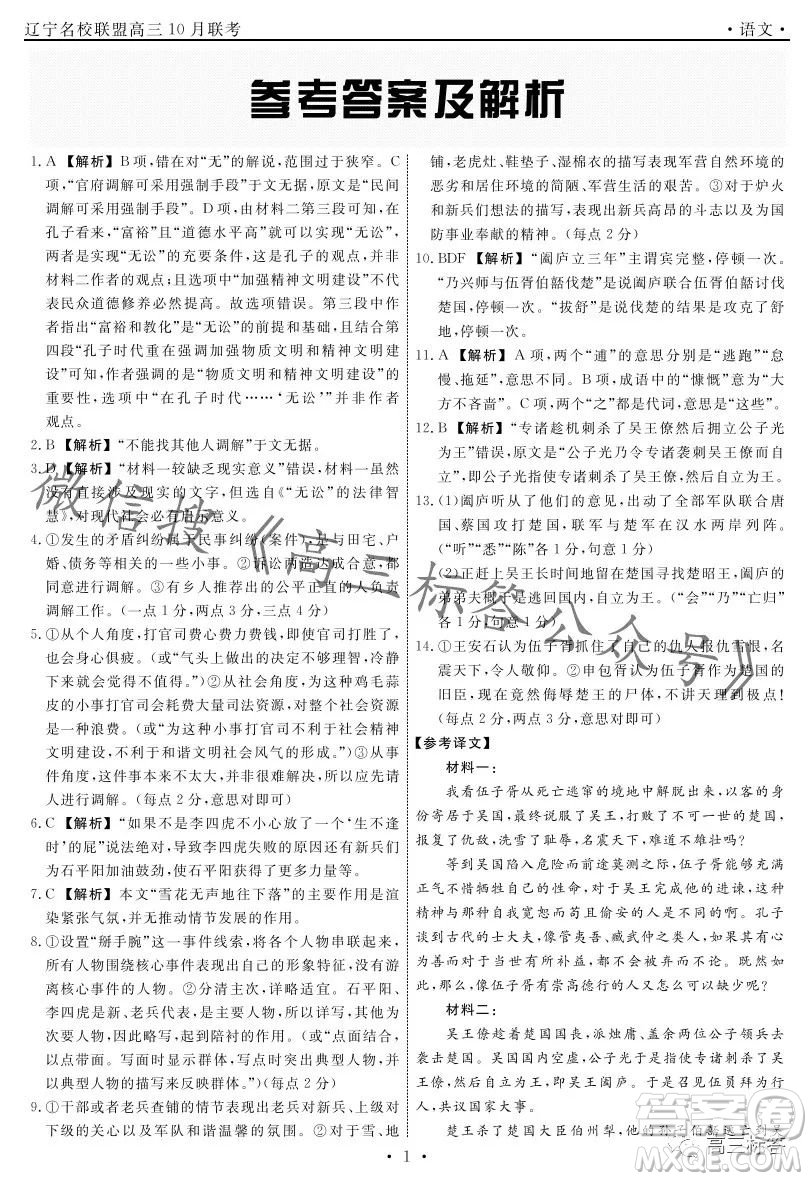 辽宁名校联盟高三10月联考
·语文·
参考答案及解析
1. A 【解析】B项，错在对“无”的解说，范围过于狭窄。C
项，“官府调解可采用强制手段”于文无据，原文是“民间
调解可采用强制手段”。D项，由材料二第三段可知，在
孔子看来，“富裕”且“道德水平高”就可以实现“无讼”，
两者是实现“无讼”的条件，这是孔子的观点，并不是材
料二作者的观点；且选项中“精神文明建设”不代
表民众道德修养必然提高。故选项错误。第三段中作
者指出“富裕和教化”是“无讼”的前提和基础，且结合第
四段“孔子时代重在强调加强物质文明和精神文明建
设”可知，作者重在强调的是“物质文明和精神文明”
的重要性，选项中“孔子时代……‘无讼’”并非作者
观点。
2. B 【解析】“不能找其他人调解”于文无据。
3. D 【解析】“材料一较缺乏现实意义”错误，材料一虽然
没有直接涉及现实的文字，但选自《“无讼”的法律智
慧》，对现代社会必有启示意义。
4. ①发生的矛盾纠纷属于民事纠纷(案件)，是与田宅、户
婚、债务等相关的一些小事。②诉讼两造达成合意，都
同意进行调解。③有乡人推荐出的公平正直的人负责
调解工作。(一点1分，两点3分，三点4分)
5. ①从个人角度，打官司费心费力费钱，即使官司打胜了，
也会身心俱疲。(或“气头上做出的决定不够理
智，冷静思考后会觉得不值得。”)②从社会角度，为这种鸡毛蒜
皮的小事打官司会耗费大量司法资源，对整个社会资源
是一种浪费。(或“为这么点小事打官司不利于社会精神
文明建设，不利于和谐社会风气的形成。”)③从事
件角度，事件本来不太大，并非无法调解，应该尽量由人
们进行调解。(每点2分，意思对即可)
6. C 【解析】“如果不是李四虎不小心放了一个‘生不逢
时’的屁”说法绝对，导致李四虎失败的原因还有新兵们
为石平阳加油鼓劲，使石平阳获得了力量。
7. C 【解析】本文“雪花无声地往下落”的主要作用是渲
染紧张气氛，并无推动情节发展的作用。
8. ①设置“掰手腕”这一事件线索，将各个人物串联起来，
所有人物围绕核心事件表现出自己的形象特征，没有游
离核心事件的人物。②主次分清，详略适宜。石平阳、
李四虎是新兵、老兵代表，是主要人物，所以详写，其他
为次要人物，起到陪衬的作用，因此略写。③点面结合。
众多人物的描写显示出群体，然后突出典型人物，并
以典型人物的描写来反映群体。(每点2分)
9. ①干部或者老兵查铺的情节表现出老兵对新兵、上级对
下级的关心以及军营和谐温馨的氛围。②对于雪、地
铺，老虎灶、鞋垫子、湿棉衣的描写表现军营自然环境的
恶劣和居住环境的简陋、军营生活的艰苦。③对于炉火
和新兵们想法的描写，表现出新兵高昂的斗志以及为国
防事业奉献的精神。(每点2分)
10. BDF 【解析】“阖庐立三年”主谓宾完整，停顿一次。
“乃兴师与伍胥伯嚭伐楚”是阖庐联合伍胥伯嚭讨伐
楚国，停顿一次。“拔舒”是伐楚的结果是攻克了舒
地，停顿一次。
11. A 【解析】A项，两个“逋”的意思分别是“逃跑”“怠
慢、拖延”，意思不同。B项，成语中的“慷慨”意思是“大
方不吝啬”。C项，两个“之”都是代词，意思是“到”。
12. B 【解析】“专诸趁机刺杀了吴王僚然后拥立公子光
为吴王”错误，原文是“公子光指使专诸袭刺吴王僚”，
公子光指使专诸刺杀了吴王僚，然后自立为王。
13. (1)阖庐听从了他们的意见，出动了全部军队联合唐
国、蔡国攻打楚国，联军与楚军在汉水两岸列阵。
(“听”“悉”“陈”各1分，句意1分)
(2)正赶上吴王长时间地留在楚国寻找楚昭王，阖庐的
弟弟夫概于是逃回国内，自立为王。(“会”“乃”“亡归”
各1分，句意1分)
14. ①王安石认为伍子胥抓住了自己的仇人报仇雪恨，名
震天下，令人敬仰。②申包胥认为伍子胥作为楚国的
旧臣，现在竟然侮辱楚王的尸体，不讲天理到极点！
(每点2分，两点3分，意思对即可)
【参考译文】
材料一：
我看伍子胥从死亡逃窜的境地中解脱出来，以客的身
份寄居于吴国，最终说服了吴王，打败了不可一世的楚国，
报复了仇敌，洗雪了耻辱，名震天下，难道不雄壮吗？
等到吴国陷入危险的境况，伍子胥能够慷慨激昂
义无反顾不惜牺牲自己的性命，对于吴王阖庐的进谏，这种
精神与那些自我反省而苟且偷安的人大为不同。孔子
评论古代的士大夫，像管夷吾、臧武仲之类，如果他们的
志向对于当世有所补益，都不会废弃他们，既然这
样，那么像伍子胥那样有崇高德行的人又怎么可以缺少呢？
材料二：
吴王僚趁着楚国国丧，派烛庸、盖余两位公子领兵去
袭击楚国。吴国国内空虚，公子光指使专诸刺杀了吴
王僚，然后自立为王，即为吴王阖庐。吴王召见伍员，
共议国家大事。
楚王杀了楚国大臣伯州犁，伯州犁的孙子伯嚭逃亡到吴
· 1 ·
微信搜《高三标答公众号》
答案圈
高三标答
MXQE.COM